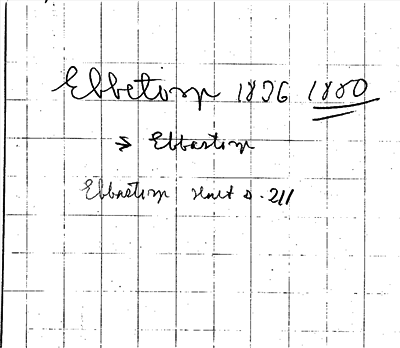 Ebbetorp 1836 1880
→ Ebbastorp
Ebbastorp s. 211